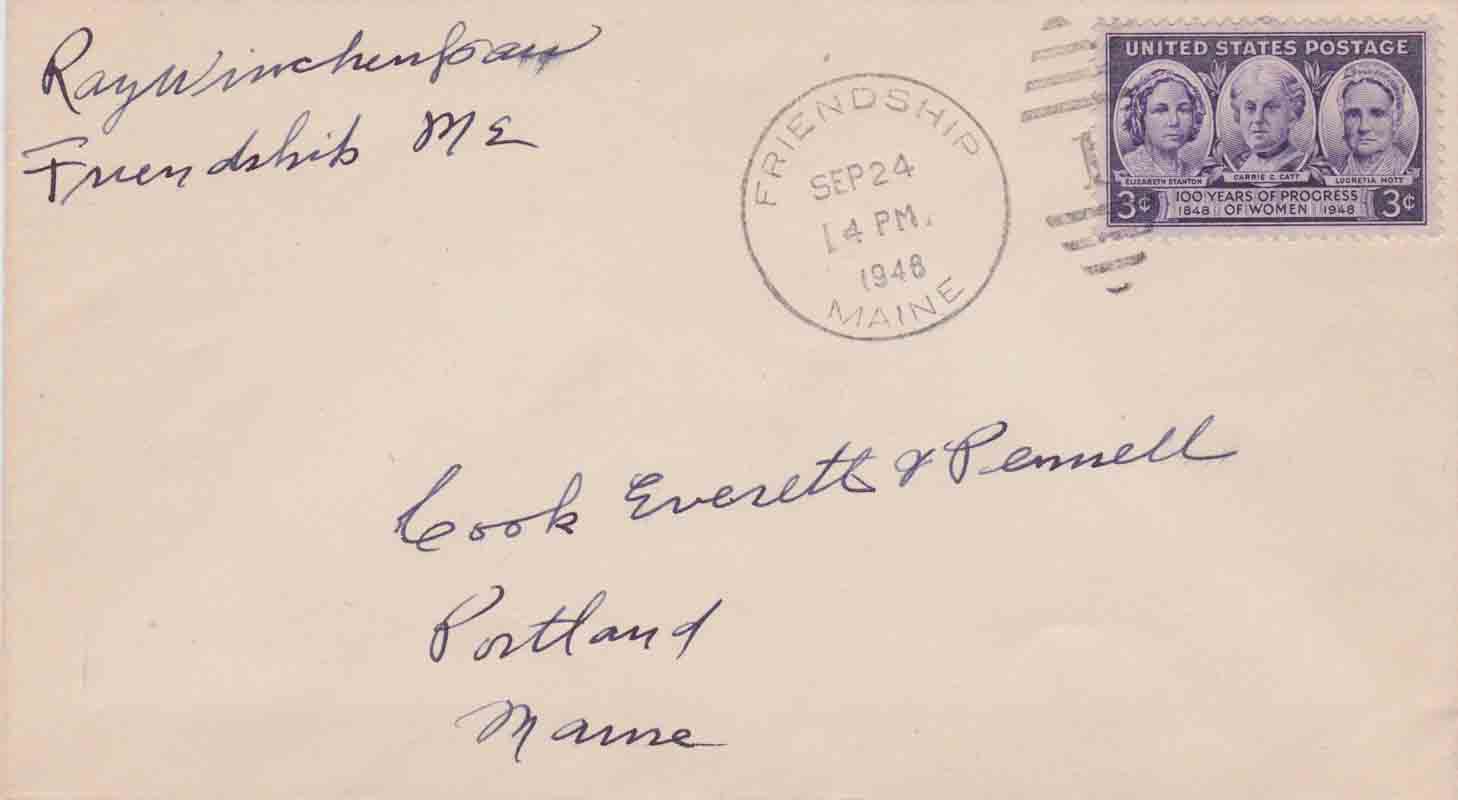 Ray Winchenpaw
Friendship ME
FRIENDSHIP
SEP 24
4 PM.
1948
MAINE
UNITED STATES POSTAGE
ELIZABETH STANTON CARRIE C. CATT LUCRETIA MOTT
3¢ 100 YEARS OF PROGRESS 3¢
1848 OF WOMEN 1948
Cook Everett & Pennell
Portland
Maine